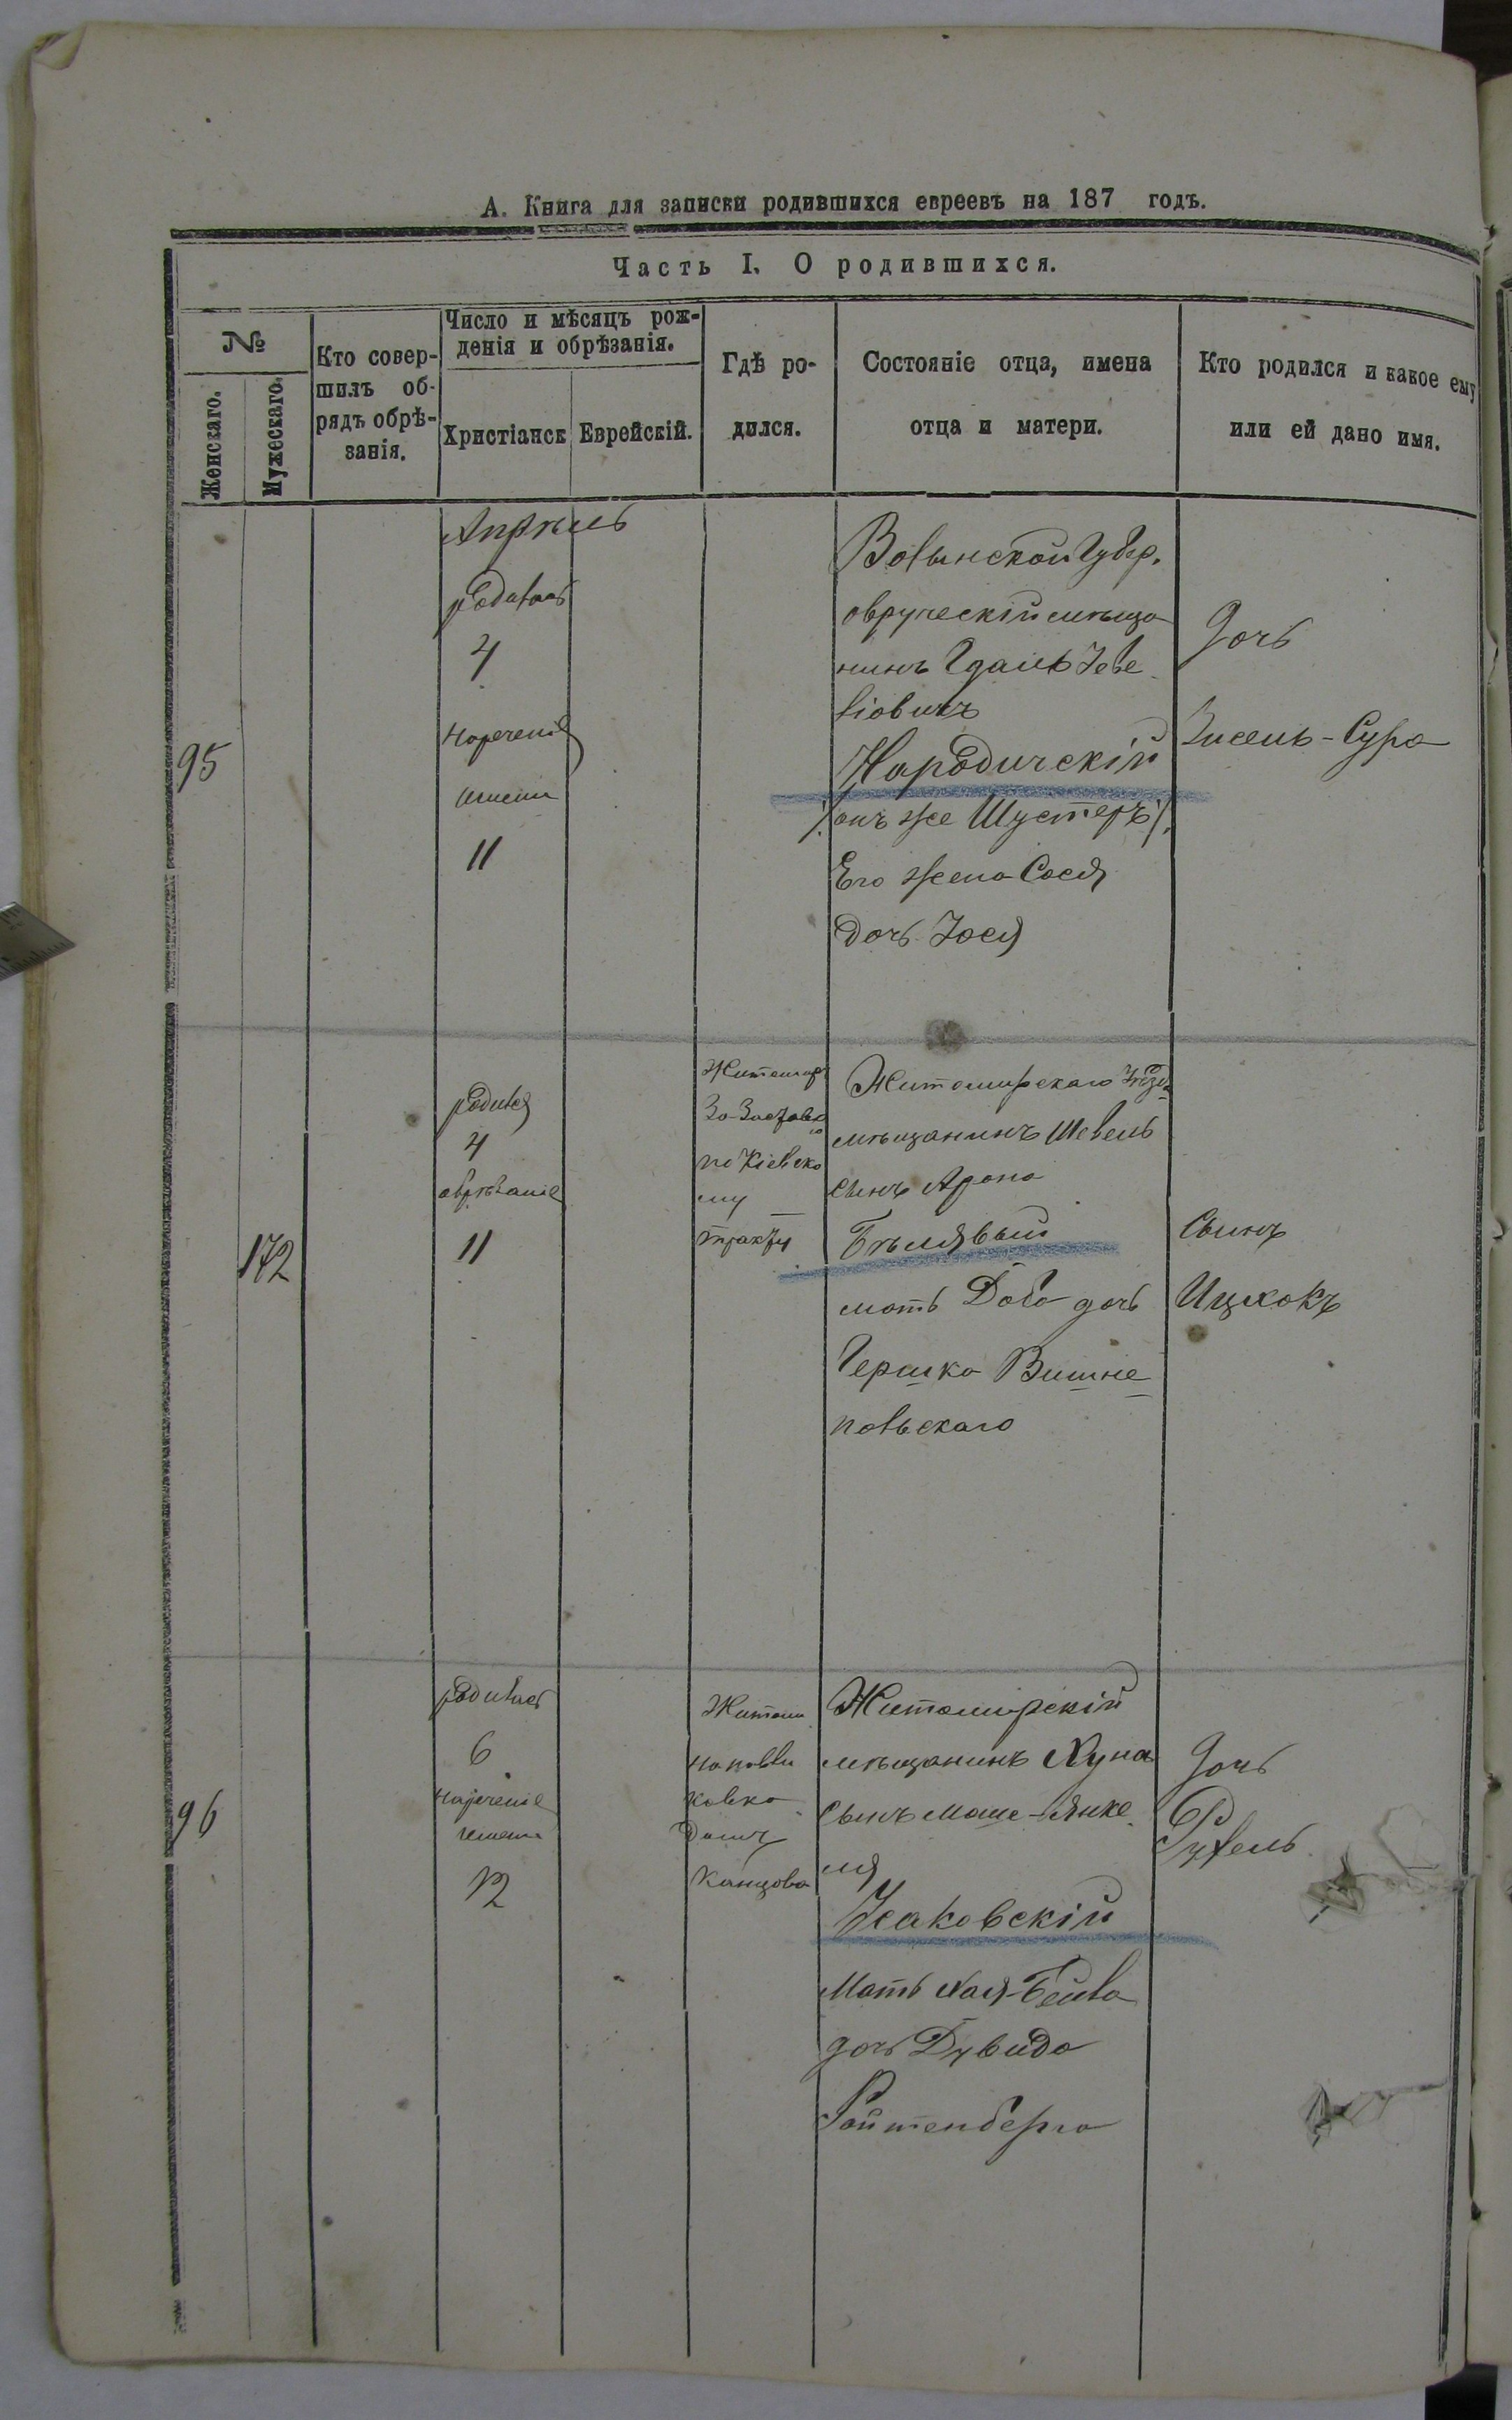 А. Книга для записки родившихся евреевъ на 187 годъ.
Часть I. О родившихся.
№
Женскаго.
Мужескаго.
Кто совер-
шилъ об-
рядъ обрѣ-
занія.
Число и мѣсяцъ рож-
денія и обрѣзанія.
Христіанск
Еврейскій.
Гдѣ ро-
дился.
Состояніе отца, имена
отца и матери.
Кто родился и какое ему
или ей дано имя.
95
Апрѣль
родилась
4
Нареченіе
имени
11
Волынской Губер.
овруческій мѣща
нинъ Гдаль Зеве
ліовичъ
Народический
/: онъ же Шустеръ :/
Его жена Сося
дочь Іося
Дочь
Зисель-Сура
172
родился
4
обрѣзаніе
11
Житомир
За Заставою
по Кіевско
му
тракту
Житомирскаго Уѣзда
мѣщанинъ Шевель
сынъ Арона
Бѣлявый
мать Доба дочь
Гершка Вишне
польскаго
Сынъ
Ицхокъ
96
родилась
6
Нареченіе
имени
12
Житом
домъ
Канцова
Житомирскій
мѣщанинъ Хуна
сынъ Моше-Янке
ля
Исаковскій
Мать Хая-Бейла
дочь Дувида
Ройтенберга
Дочь
Рухель